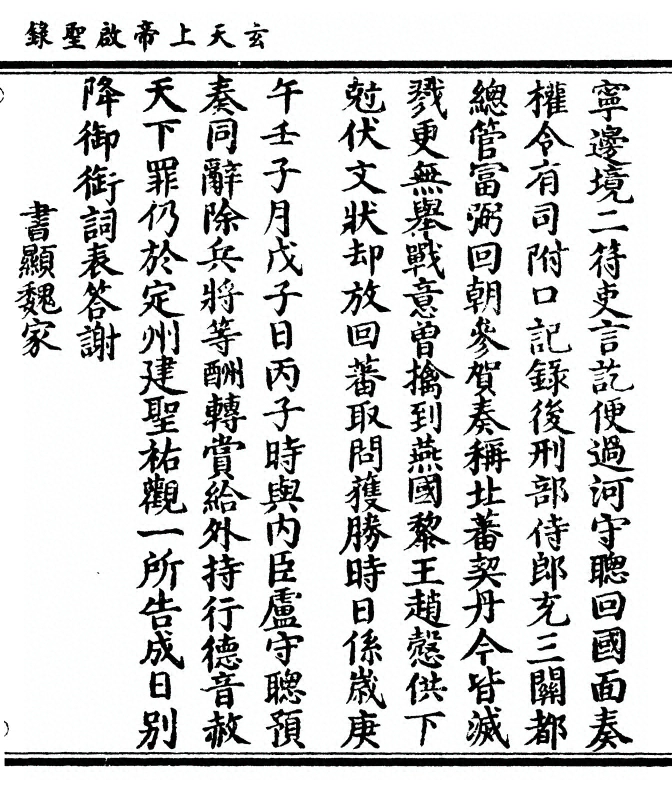 玄天上帝啟聖錄
寧邊境二符吏言訖便過河守聰回國面奏
權令有司附口記錄後刑部侍郎充三關都
總管富弼回朝參賀奏稱北蕃契丹今皆滅
戮更無舉戰意曾擒到燕國黎王趙愨供下
尅伏文狀却放回蕃取問獲勝時日係歲庚
午壬子月戊子日丙子時與內臣盧守聰預
奏同辭除兵將等酬轉賞給外持行德音赦
天下罪仍於定州建聖祐觀一所告成日別
降御銜詞表答謝
書顯魏家